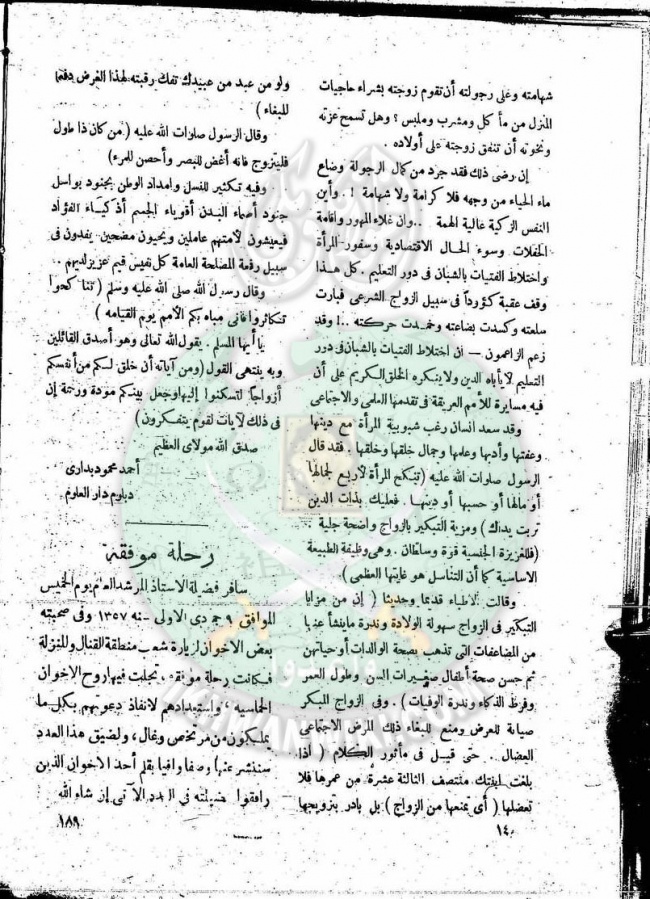 شهامته وعلى رجولته أن تقوم زوجته بشراء حاجيات
المنزل من مأكل ومشرب وملبس ؟ وهل تسمح عزته
ونخوته أن تنفق زوجته على أولاده .
إن رضى ذلك فقد جرد من كمال الرجولة وضاع
ماء الحياء من وجهه فلا كرامة ولا شهامة ! . وأين
النفس الزكية عالية الهمة . . وان غلاء المهور واقامة
الحفلات وسوء الحال الاقتصادية وسفور المرأة
واختلاط الفتيات بالشبان فى دور التعليم . كل هذا
وقف عقبة كؤوداً فى سبيل الزواج الشرعى فبارت
سلعته وكسدت بضاعته وخمدت حركته . .! وقد
زعم الزاعمون — ان اختلاط الفتيات بالشبان فى دور
التعليم لا يأباه الدين ولا ينكره الخلق الكريم على أن
فيه مسايرة للأمم العريقة فى تقدمها العلمى والاجتماعى
وقد سعد انسان رغب شبوبية المرأة مع دينها
وعفتها وأدبها وعلمها وجمال خلقها وخلقها . فقد قال
الرسول صلوات الله عليه ( تنكح المرأة لأربع لجمالها
أو مالها أو حسبها أو دينها . فعليك بذات الدين
تربت يداك ) ومزية التبكير بالزواج واضحة جلية
( فللغريزة الجنسية قوة وسلطان . وهى وظيفة الطبيعة
الاساسية كما أن التناسل هو غايتها العظمى )
وقالت الأطباء قديما وحديثا ( إن من مزايا
التبكير فى الزواج سهولة الولادة وندرة ما ينشأ عنها
من المضاعفات التى تذهب بصحة الوالدات أو حياتهن
ثم حسن صحة أطفال صغيرات السن وطول العمر
وفرط الذكاء وندرة الوفيات ) . وفى الزواج المبكر
صيانة للعرض ومنع للبغاء ذلك المرض الاجتماعى
العضال . . حتى قيل فى مأثور الكلام ( اذا
بلغت ابنتك منتصف الثالثة عشرة من عمرها فلا
تعضلها ( أى تمنعها من الزواج ) بل بادر بتزويجها
١٤
ولو من عبد من عبيدك تفك رقبته لهذا الغرض دفعا
للبغاء )
وقال الرسول صلوات الله عليه ( من كان ذا طول
فليتزوج فانه أغض للبصر وأحصن للمرء )
وفيه تكثير للنسل وامداد الوطن بجنود بواسل
جنود أصحاء البدن أقوياء الجسم أذكياء الفؤاد
فيعيشون لأمتهم عاملين ويحيون مضحين يفدون فى
سبيل رفعة المصلحة العامة كل نفيس قيم عزيز لديهم . .
وقال رسول الله صلى الله عليه وسلم ( تناكحوا
تكاثروا فانى مباه بكم الأمم يوم القيامه )
يا أيها المسلم . يقول الله تعالى وهو أصدق القائلين
وبه ينتهى القول ( ومن آياته أن خلق لكم من أنفسكم
أزواجا لتسكنوا إليها وجعل بينكم مودة ورحمة إن
فى ذلك لآيات لقوم يتفكرون )
صدق الله مولاى العظيم
أحمد محمود بدارى
دبلوم دار العلوم
رحلة موفقة
سافر فضيلة الاستاذ المرشد العام يوم الخميس
الموافق ٩ جمادى الاولى سنه ١٣٥٧ وفى صحبته
بعض الاخوان لزيارة شعب منطقة القنال والمنزلة
فكانت رحلة موفقة ، تجلت فيها روح الاخوان
الحماسية ، واستعدادهم لانفاذ دعوتهم بكل ما
يملكون من مرتخص وغال ، ولضيق هذا العدد
سننشر عنها وصفا وافيا بقلم أحد الاخوان الذين
رافقوا فضيلته فى العدد الآتى إن شاء الله
١٨٩
وأعدوا
IKHWANWIKI.COM